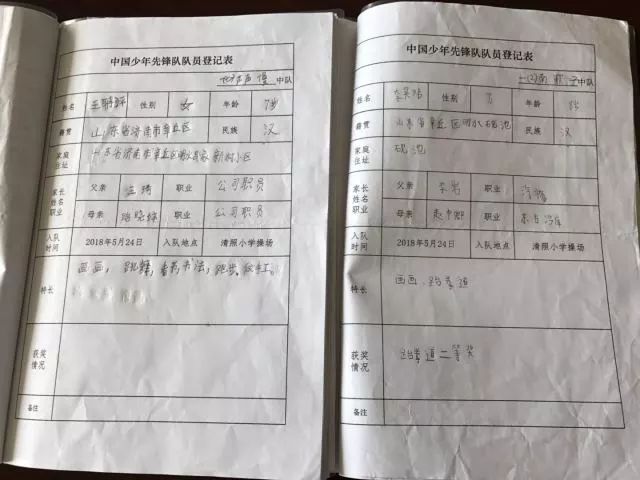 中国少年先锋队队员登记表
中队
姓名 性别 女 年龄 7岁
籍贯 山东省济南市章丘区 民族 汉
家庭住址 山东省济南市章丘区明水 新村小区
家长姓名职业 父亲 职业 公司职员
母亲 职业 公司职员
入队时间 2018年5月24日 入队地点 清照小学操场
特长 画画，跳舞，书法，跑步，
获奖情况
备注
中国少年先锋队队员登记表
中队
姓名 性别 男 年龄
籍贯 山东省章丘区明水砚池 民族 汉
家庭住址 砚池
家长姓名职业 父亲 李岩 职业
母亲 职业
入队时间 2018年5月24日 入队地点 清照小学操场
特长 画画、跆拳道
获奖情况 跆拳道二等奖
备注